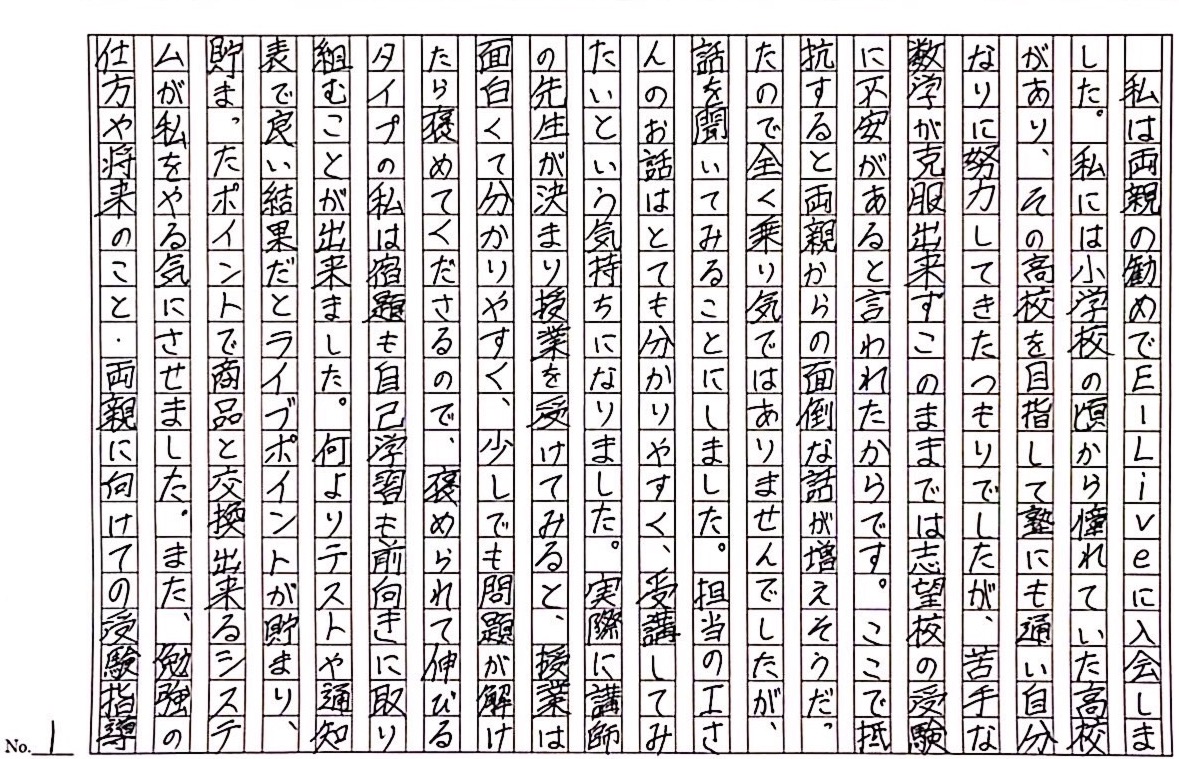 私は両親の勧めでE-Liveに入会しま
した。私には小学校の頃から憧れていた高校
があり、その高校を目指して塾にも通い自分
なりに努力してきたつもりでしたが、苦手な
数学が克服出来ずこのままでは志望校の受験
に不安があると言われたからです。ここで抵
抗すると両親からの面倒な話が増えそうだっ
たので全く乗り気ではありませんでしたが、
話を聞いてみることにしました。担当の工さ
んのお話はとても分かりやすく、受講してみ
たいという気持ちになりました。実際に講師
の先生が決まり授業を受けてみると、授業は
面白くて分かりやすく、少しでも問題が解け
たら褒めてくださるので、褒められて伸びる
タイプの私は宿題も自己学習も前向きに取り
組むことが出来ました。何よりテストや通知
表で良い結果だとライブポイントが貯まり、
貯まったポイントで商品と交換出来るシステ
ムが私をやる気にさせました。また、勉強の
仕方や将来のこと・両親に向けての受験指導
No. 1